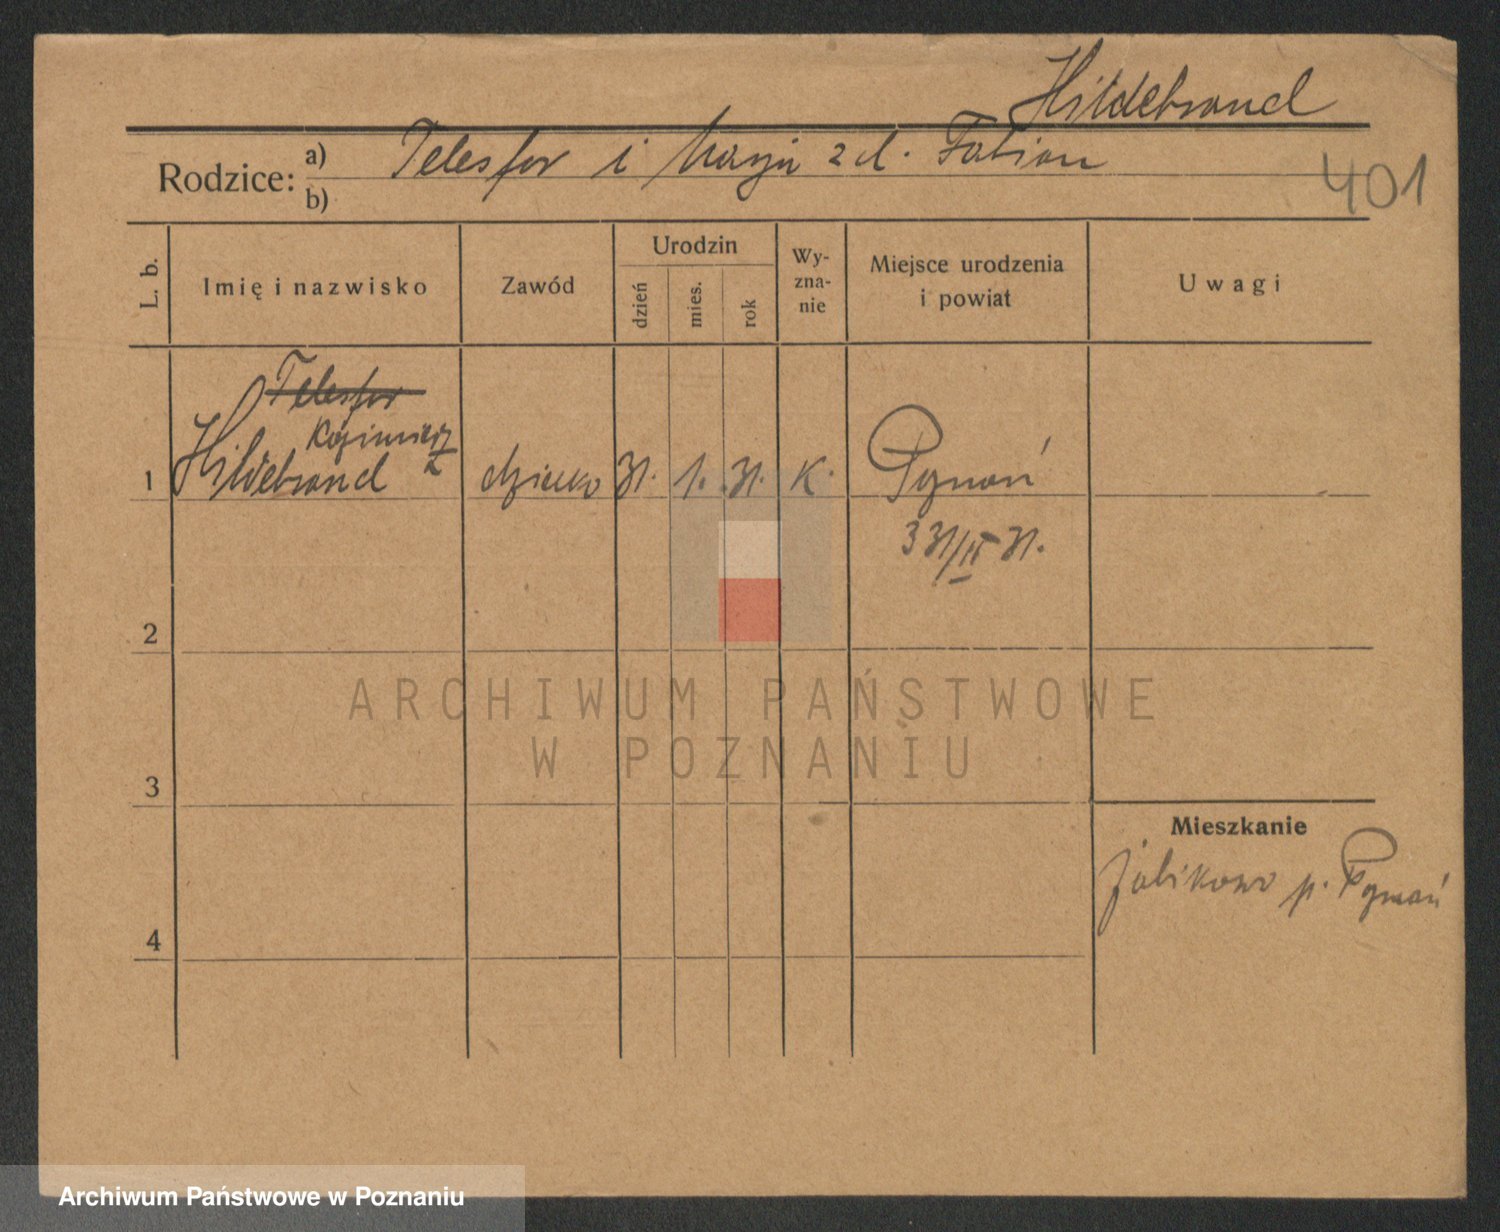 Hildebrand
Rodzice: a) Telesfor i Marja z d. Fabian
b)
401
L. b.
Imię i nazwisko
Zawód
Urodzin
dzień
mies.
rok
Wy-
zna-
nie
Miejsce urodzenia
i powiat
Uwagi
Telesfor
Kazimierz
1 Hildebrand dziecko 31. 1. 31. K. Poznań
331/II 31.
2
ARCHIWUM PAŃSTWOWE
W POZNANIU
3
Mieszkanie
Żabikowo p. Poznań
4
Archiwum Państwowe w Poznaniu